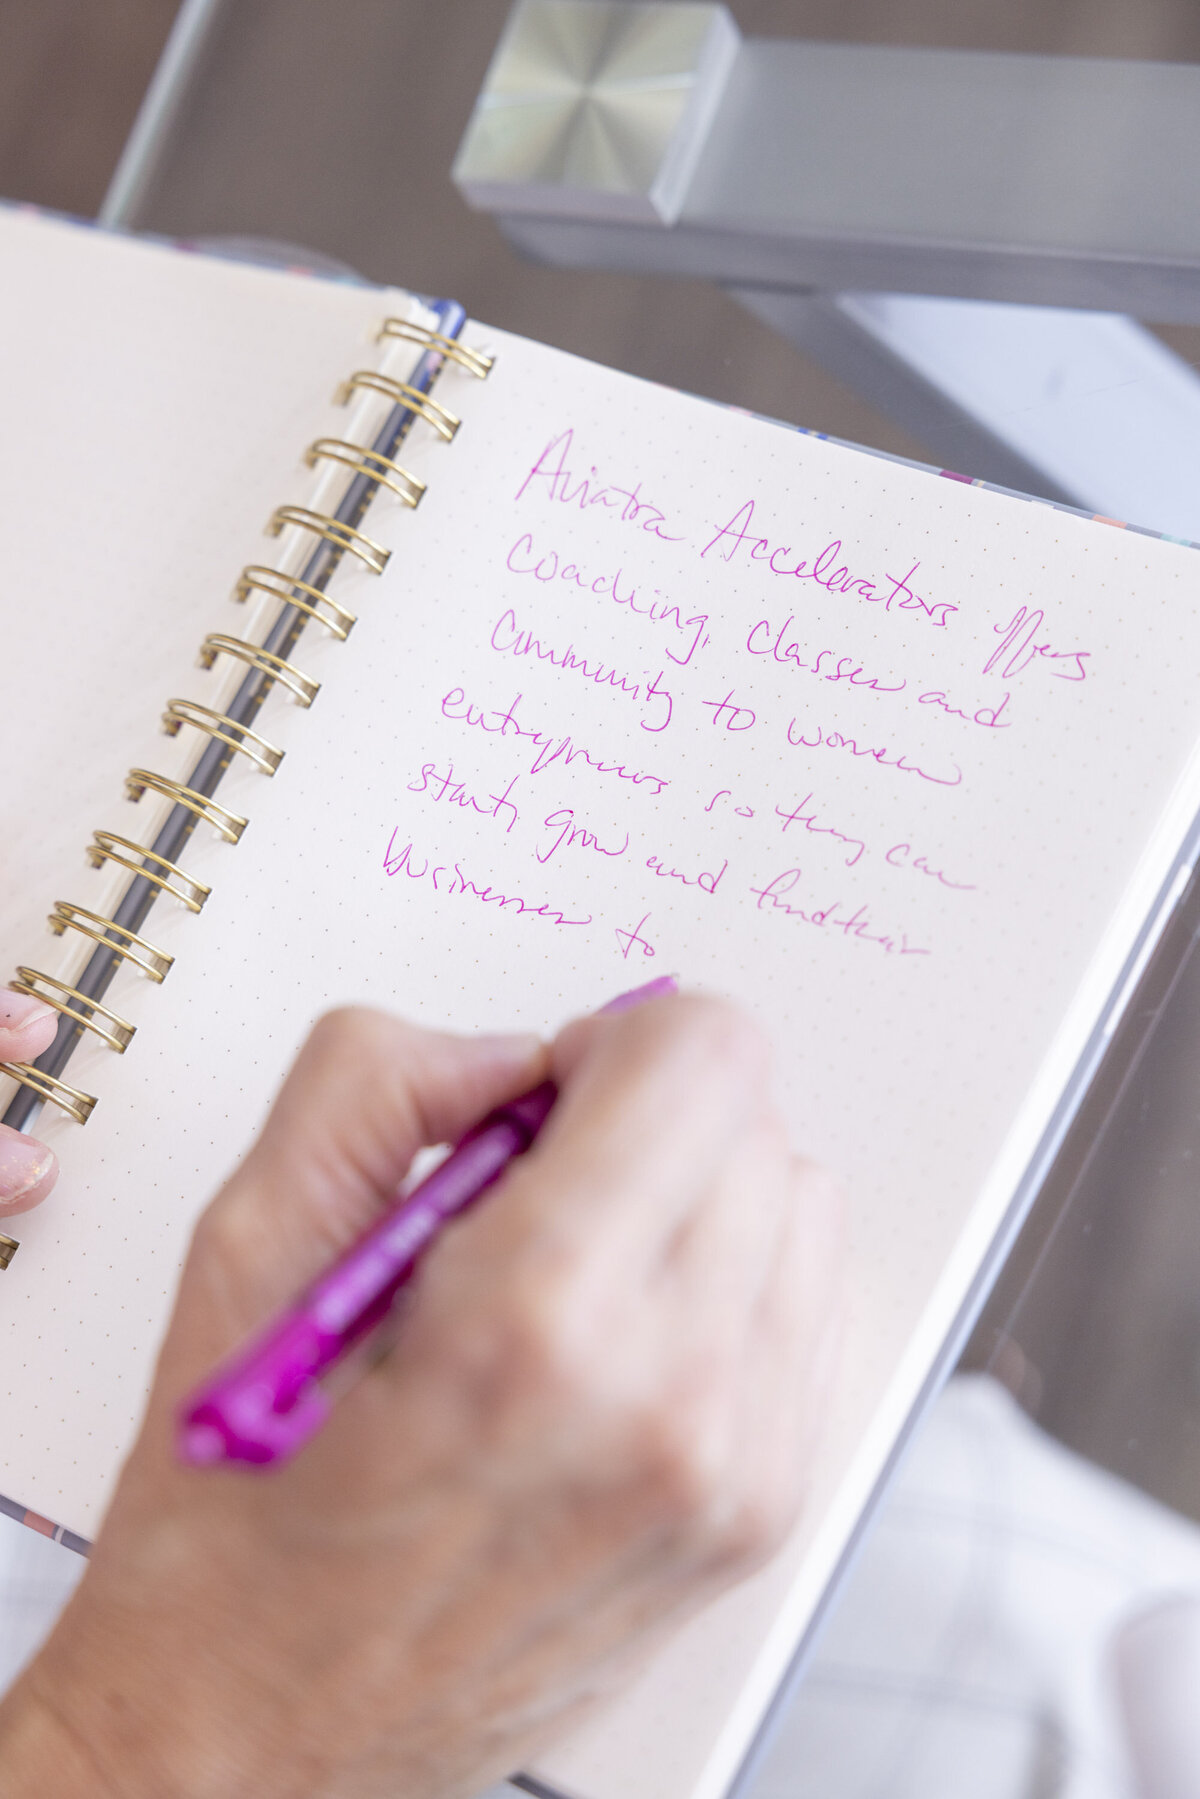 Aviatra Accelerators offers
coaching, classes and
community to women
entrepreneurs so they can
start, grow and fund their
businesses to